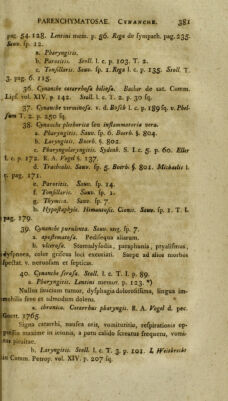 PARENCHYMATOSAE. CYNANCHE. 381
pag. 54. 128. Lentini mem. p. 56. Rega de sympath. pag. 235.
Sauv. sp. 12.
a. Pharyngitis.
b. Parotitis. Stoll. l. c. p. 103. T. 2.
c. Tonsillaris. Sauv. sp. 1. Rega l. c. p. 135. Stoll. T.
3. pag. 6. 115.
36. Cynanche catarrhosa biliosa. Bacher de sat. Comm.
Lipf. vol. XIV. p. 142. Stoll. l. c. T. 2. p. 30 sq.
37. Cynanche verminosa. v. d. Bosch l. c. p. 189 sq. v. Phel-
sum T. 2. p. 250 sq.
38. Cynanche plethorica seu inflammatoria vera.
a. Pharyngitis. Sauv. sp. 6. Boerh. §. 804.
b. Laryngitis. Boerh. §. 802.
c. Pharyngolaryngitis. Sydenh. S. I. c. 5. p. 60. Eller
l. c. p. 172. R. A. Vogel §. 137.
d. Trachealis. Sauv. sp. 5. Boerh. §. 801. Michaelis l.
c. pag. 171.
e. Parotitis. Sauv. sp. 14.
f. Tonsillaris. Sauv. sp. 1.
g. Thymica. Sauv. sp. 7.
h. Hypostaphyle. Himantosis. Cionis. Sauv. sp. 1. T. I.
pag. 179.
39. Cynanche purulenta. Sauv. seq. sp. 7.
a. apostematosa. Pedisequa aliarum.
b. ulcerosa. Stomadylodia, paraphonia, ptyalismus,
dyspnoea, color gracilis loci excoriati. Saepe ad alios morbos
spectat. v. nervosam et septicas.
40. Cynanche serosa. Stoll. l. c. T. I. p. 89.
a. Pharyngitis. Lentini memor. p. 123. *)
Nullus faucium tumor, dysphagia dolorosissima, lingua im-
mobilis fere et admodum dolens.
a. chronica. Catarrhus pharyngis. R. A. Vogel d. pec.
Goett. 1765.
Signa catarrhi, nausea oris, vomituritio, respirationis op-
pressio maxime in ieiunis, a potu calido screatus frequens, vomi-
tus pituitae.
b. Laryngitis. Stoll. l. c. T. 3. p. 101. I. Weitbrecht
in Comm. Petrop. vol. XIV. p. 207 sq.